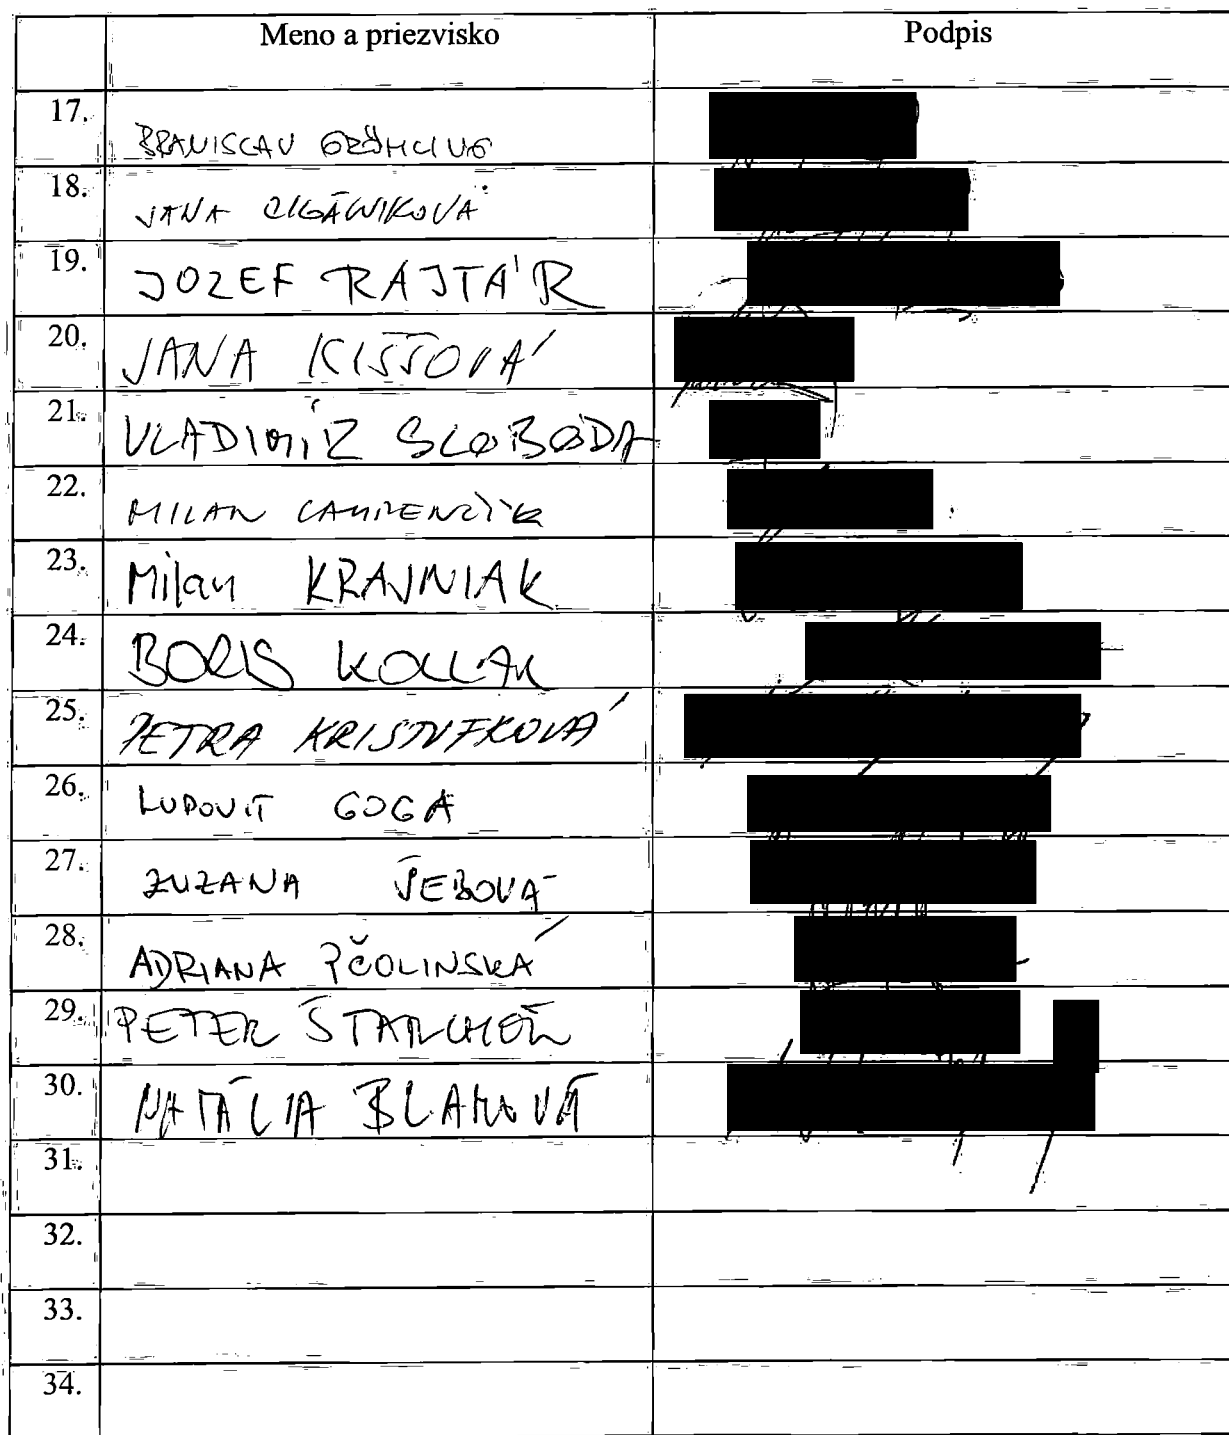 Meno a priezvisko Podpis
17. BRANISLAV GRÖHLING
18. JANA CIGÁNIKOVÁ
19. JOZEF RAJTÁR
20. JANA KIŠŠOVÁ
21. VLADIMÍR SLOBODA
22. MILAN
23. Milan KRAJNIAK
24. BORIS KOLLAR
25. PETRA KRISTUFKOVÁ
26. LUDOVIT GOGA
27. ZUZANA ŠEBOVÁ
28. ADRIANA PČOLINSKÁ
29. PETER ŠTARCHOŇ
30. NATÁLIA BLAHOVÁ
31.
32.
33.
34.